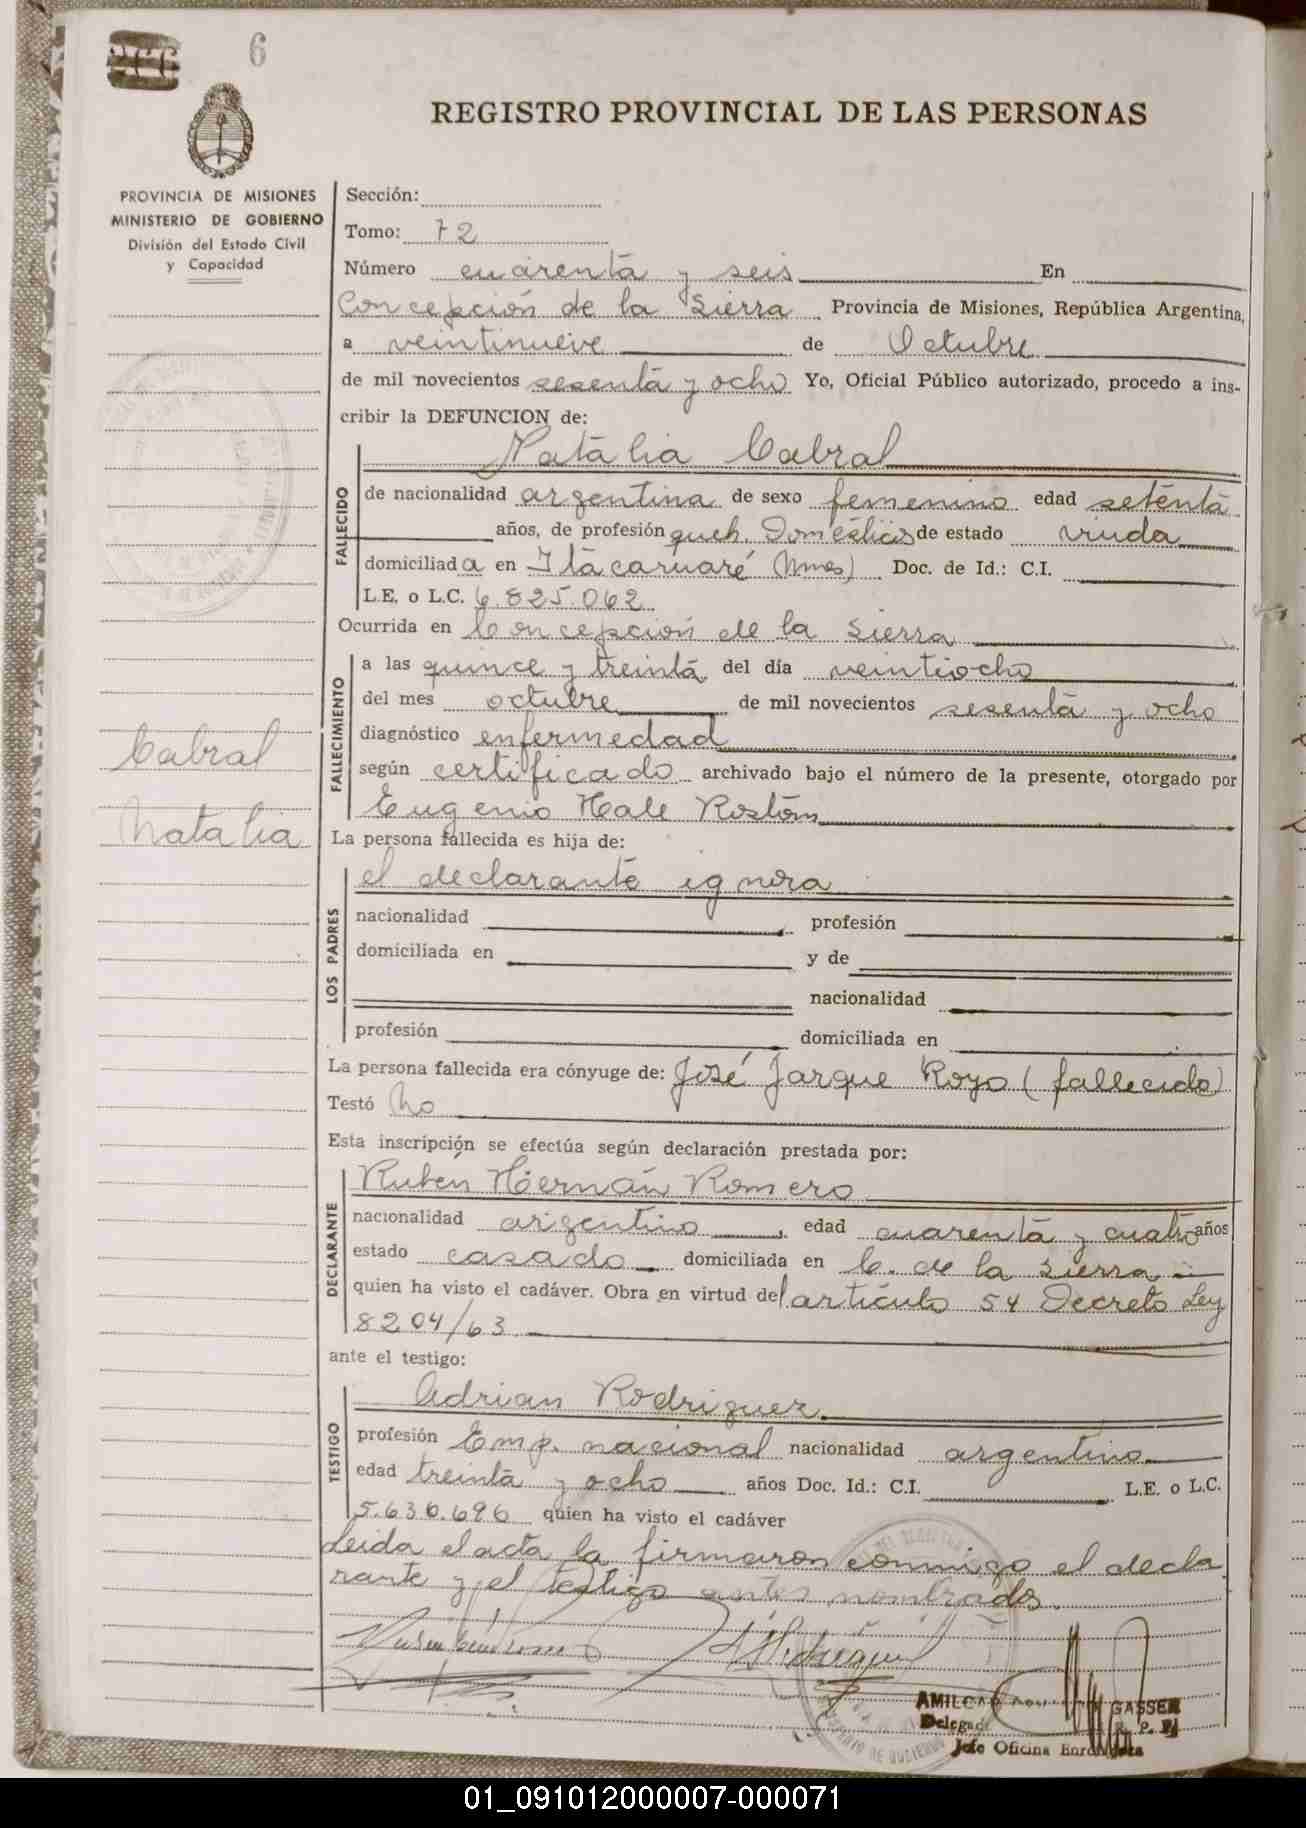 6
REGISTRO PROVINCIAL DE LAS PERSONAS
PROVINCIA DE MISIONES
MINISTERIO DE GOBIERNO
División del Estado Civil
y Capacidad
Sección:
Tomo: 72
Número cuarenta y seis En
Concepción de la Sierra Provincia de Misiones, República Argentina,
a veintinueve de Octubre
de mil novecientos sesenta y ocho Yo, Oficial Público autorizado, procedo a ins-
cribir la DEFUNCION de:
FALLECIDO
Natalia Cabral
de nacionalidad argentina de sexo femenino edad setenta
años, de profesión queh. Domésticos de estado viuda
domiciliada en Itacaruaré (Mnes) Doc. de Id.: C.I.
L.E. o L.C. 6.825.062
Ocurrida en Concepción de la Sierra
FALLECIMIENTO
a las quince y treinta del día veintiocho
del mes octubre de mil novecientos sesenta y ocho
diagnóstico enfermedad
según certificado archivado bajo el número de la presente, otorgado por
Eugenio Hale Rostom
Cabral
Natalia
La persona fallecida es hija de:
LOS PADRES
el declarante ignora
nacionalidad profesión
domiciliada en y de
nacionalidad
profesión domiciliada en
La persona fallecida era cónyuge de: José Jarque Royo (fallecido)
Testó No
Esta inscripción se efectúa según declaración prestada por:
DECLARANTE
Rubén Hernán Romero
nacionalidad argentino, edad cuarenta y cuatro años
estado casado domiciliada en C. de la Sierra
quien ha visto el cadáver. Obra en virtud del artículo 54 Decreto Ley
8204/63
ante el testigo:
TESTIGO
Adrian Rodriguez
profesión Emp. nacional nacionalidad argentino
edad treinta y ocho años Doc. Id.: C.I. L.E. o L.C.
5.630.696 quien ha visto el cadáver
Leida el acta la firmaron conmigo el decla
rante y el testigo antes nombrados.
AMILCAR GASSER
Delegado R. P. P.
Jefe Oficina
01_091012000007-000071